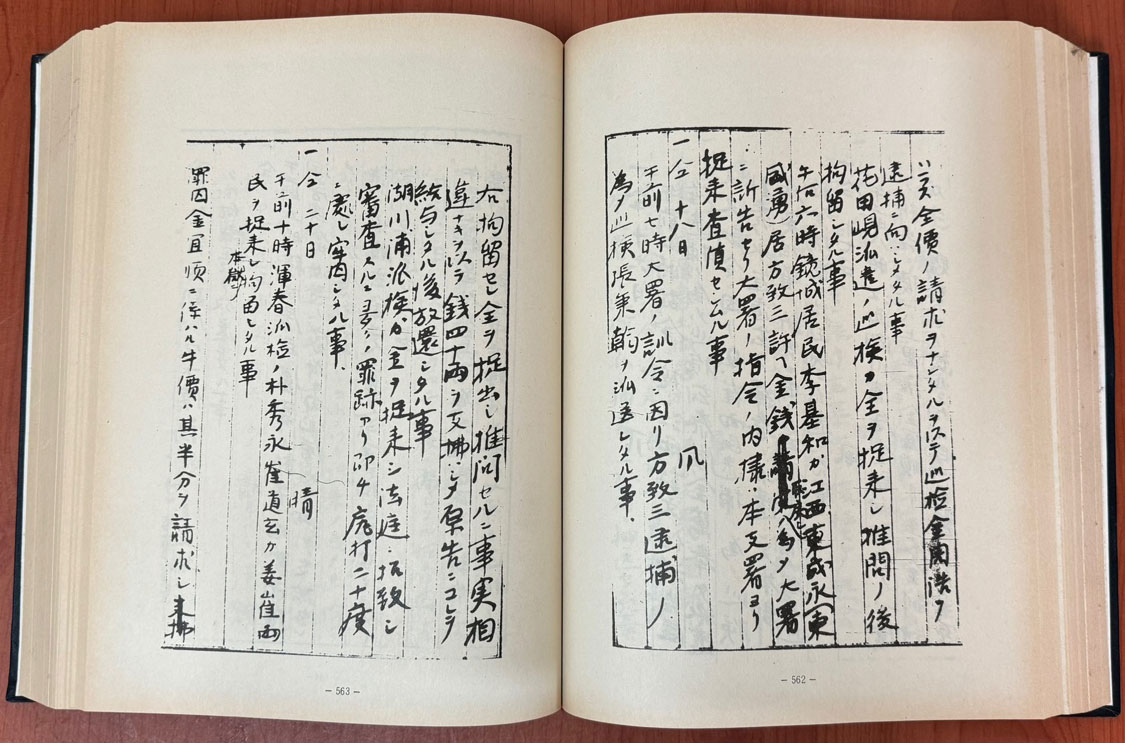 ハズ金價ノ請求ヲナシタルヲ以テ巡檢金ヲ
逮捕ニ向ハシタル事
花田峴派遣ノ巡檢カ全ヲ捉来シ推問ノ後
拘留シタル事
午后六時鏡城居民李基和カ江西東或永(東
或勇)居方致三許ヘ金錢ノ為メ大署
ニ訴告セリ大署ノ指令ノ内據本支署ヨリ
捉来査傎セシムル事
一仝十八日 風
午前七時大署ノ訓令ニ因リ方致三逮捕ノ
為メ巡檢張秉翰ヲ派送シタル事、
- 562 -
右拘留セシ全ヲ捉出シ推問セルニ事実相
違ナキヲ以テ錢四十両ヲ支拂シメ原告ニコレヲ
給与シタル後放還シタル事
湖川浦派檢カ金ヲ捉来シ法庭ニ拓致シ
審査スルニ ノ罪跡アリ即チ笞打二十度
ニ處シ牢囚シタル事、
一仝二十日 晴
午前十時渾春派檢ノ朴秀永崔道玄カ姜崔両
民ヲ捉来シ拘留シタル事
罪囚金宜順ニ係ハル牛價ハ其半分ヲ請求シ来拂
- 563 -